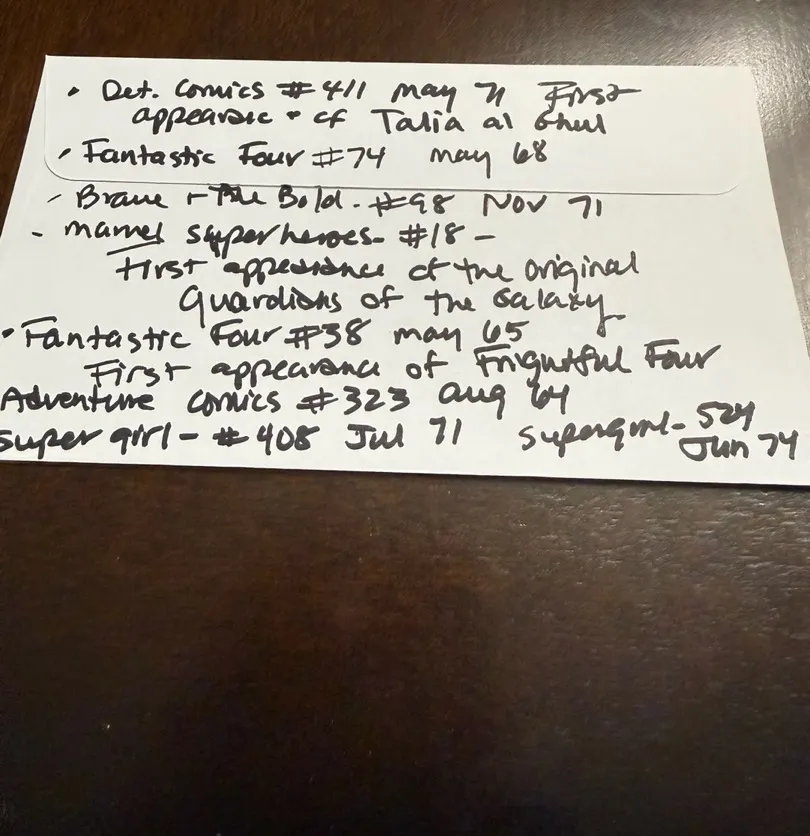 • Det. Comics #411 may 71 First
appearance of Talia al Ghul
- Fantastic Four #74 may 68
- Brave + The Bold. #98 Nov 71
- marvel superheroes - #18 -
First appearance of the original
Guardians of the Galaxy
• Fantastic Four #38 may 65
First appearance of Frightful Four
Adventure comics #323 aug 64
super girl - #408 Jul 71 supergirl - 524
Jun 74